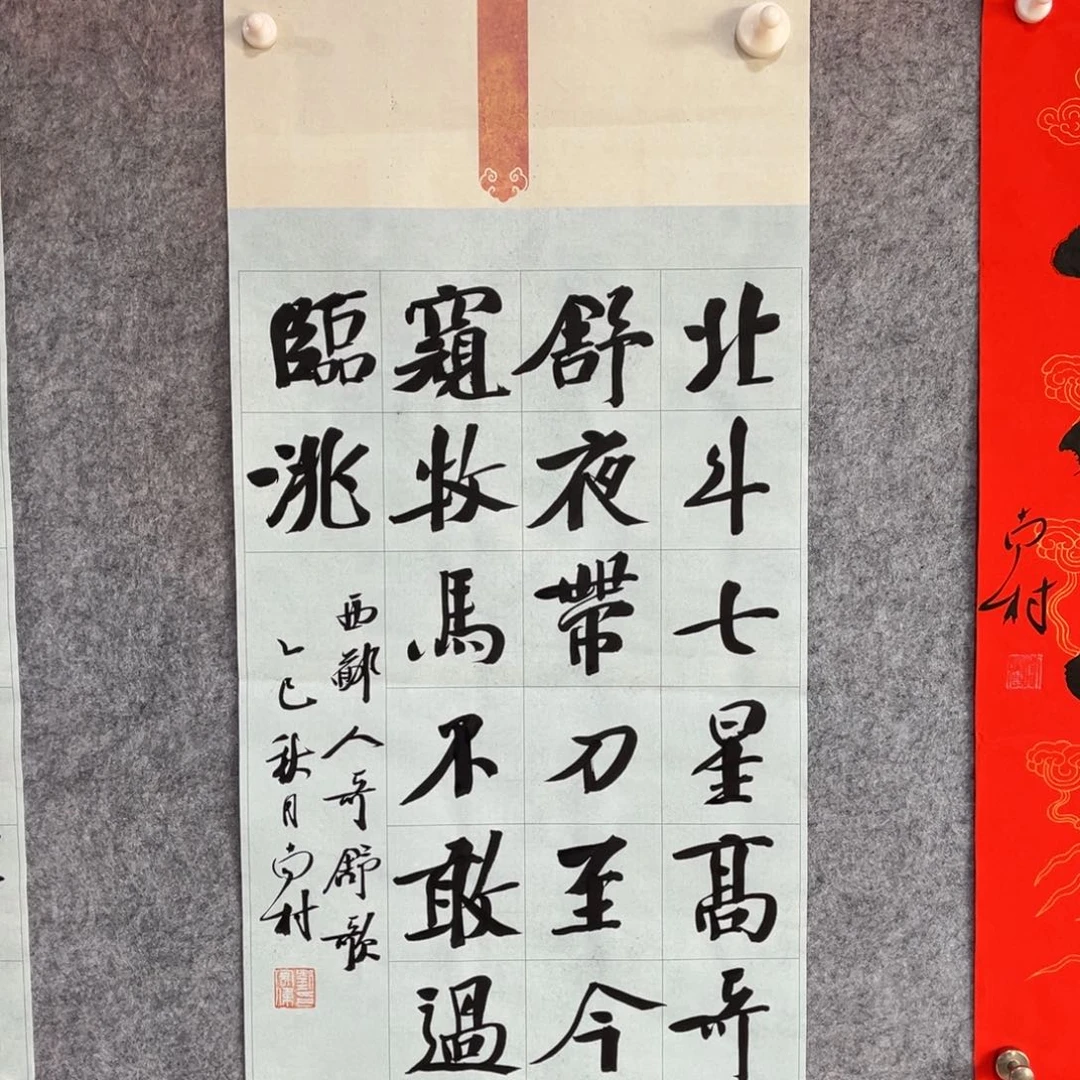 北斗七星髙哥
舒夜帶刀至今
窺牧馬不敢過
臨洮
西鄙人哥舒歌
乙巳秋月尚村
尚村